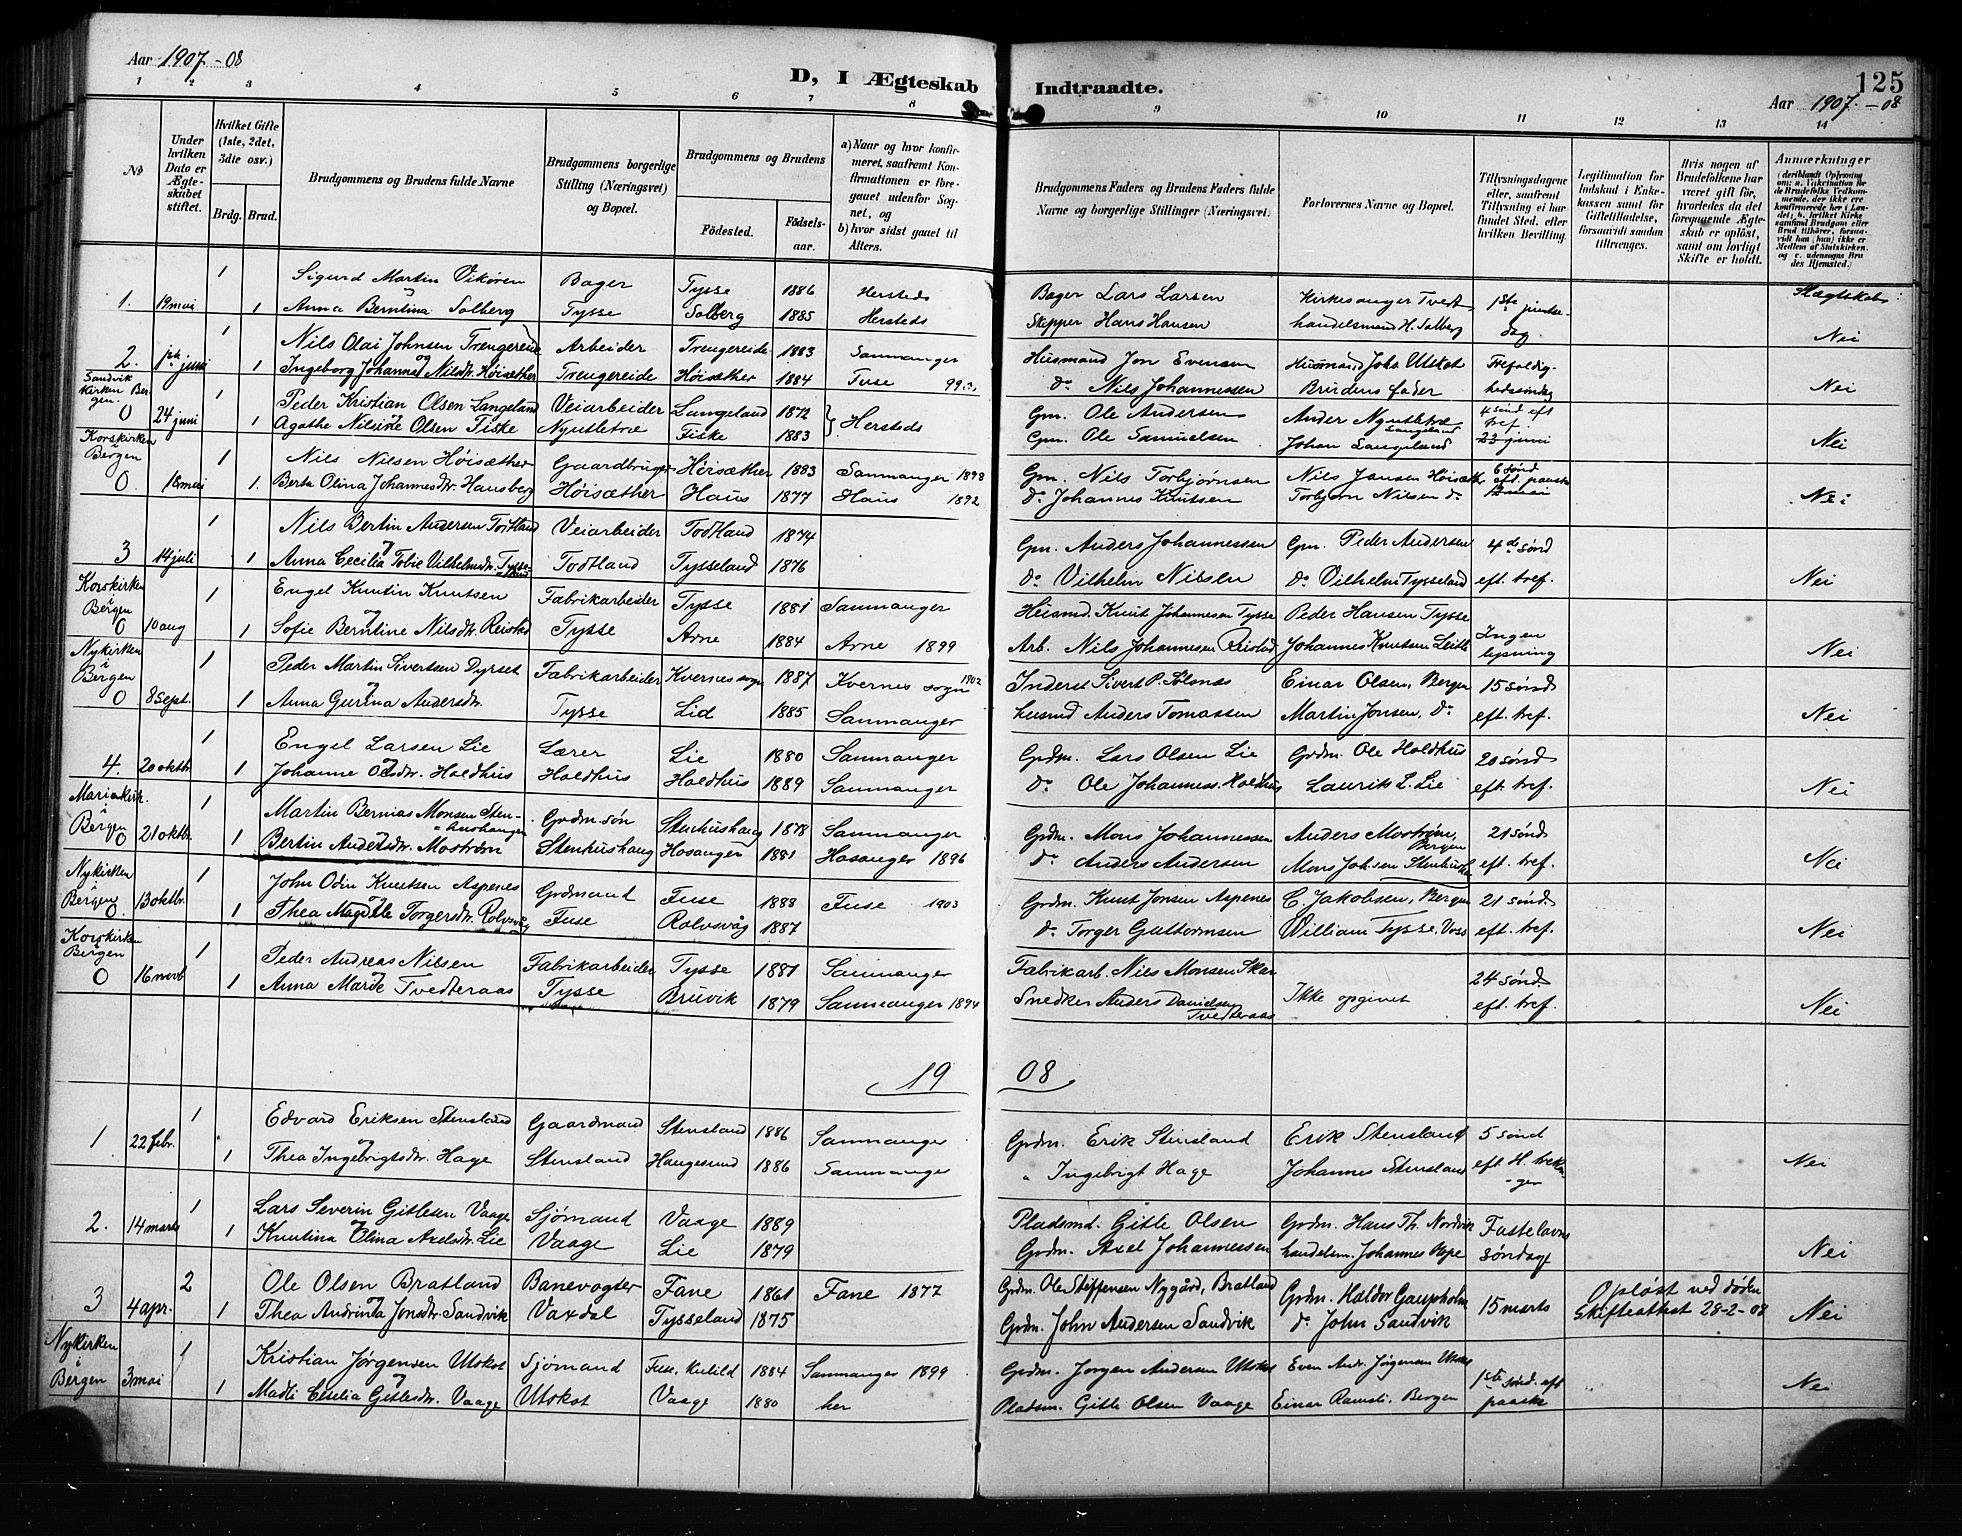 Aar 1907-08
D, I Ægteskab Indtraadte.
125
Aar 1907-08
1 2 3 4 5 6 7 8 9 10 11 12 13 14
No
Under hvilken Dato er Ægteskabet stiftet.
Hvilket Gifte (1ste, 2det, 3die osv.)
Brdg. Brud.
Brudgommens og Brudens fulde Navne
Brudgommens borgerlige Stilling (Næringsvei) og Bopæl.
Brudgommens og Brudens
Fødested. Fødselsaar.
a) Naar og hvor konfirmeret, saafremt Konfirmationen er foregaaet udenfor Sognet, og
b) hvor sidst gaaet til Alters.
Brudgommens Faders og Brudens Faders fulde Navne og borgerlige Stillinger (Næringsvei.
Forlovernes Navne og Bopæl.
Tillysningsdagene eller, saafremt Tillysning ei har fundet Sted, efter hvilken Bevilling.
Legitimation for Indskud i Enkekassen samt for Giftetilladelse, forsaavidt saadan tiltrænges.
Hvis nogen af Brudefolkene har været gift før, hvorledes da det foregaaende Ægteskab er opløst, samt om lovligt Skifte er holdt.
Anmærkninger
1 Sigurd Martin Vikøren Bager Tysse 1886 Hersteds Bager Lars Larsen Kirkesanger Tvedt 1ste pintse- Slægtskab:
1. 19 mai 1 Anna Berntina Solberg Tysse Solberg 1885 Hersteds Skipper Hans Hansen handelsmand H. Solberg dag Nei
1 Nils Olai Johnsen Trengereide Arbeider Trengereide 1883 Sammanger Husmand Jon Evensen Husmand Johs Utskot Trefoldig-
2. juni 1 Ingeborg Johanna Nilsdtr. Høisæther Trengereide Høisæther 1884 Fuse 99 do Nils Johannessen Brudens fader hedssøndag Nei
Sandvik Kirken Bergen
1 Peder Kristian Olsen Langeland Veiarbeider Langeland 1872 Hersteds Gm. Ole Andersen Ander Nyutletræ 4 sønd eft tref
0 24 juni 1 Agathe Olsen Fiske Nyutletræ Fiske 1883 Gm. Ole Samuelsen Johan Langeland 23 juni Nei
Korskirken i Bergen
1 Nils Nilsen Høisæther Gaardbruger Høisæther 1883 Sammanger 1898 Gm. Nils Torbjørnsen Nils Jansen Høisæth 6 sønd eft. paaske
0. 18 mai 1. Berta Olina Johannesdtr. Hausberg Høisæther Haus 1877 Haus 1892 do Johannes Knutsen Torbjørn Nilsen do Nei
1 Nils Bertin Andersen Todtland Veiarbeider Todtland 1874 Gm. Anders Johannessen Gm. Peder Andersen 4de sønd
3 14 juli 1 Anna Cecilia Tobie Vilhelmsdtr. Tysseland Todtland Tysseland 1876 do Vilhelm Nilsen do Vilhelm Tysseland eft. tref. Nei
Korskirken i Bergen
1 Engel Knutin Knutsen Fabrikarbeider Tysse 1881 Sammanger Husmd. Knut Johannesen Tysse Peder Hansen Tysse Ingen
0 10 aug 1 Sofie Berntine Nilsdtr. Reistad Tysse Arne 1884 Arne 1899 Arb. Nils Johannesen Reistad Johannes Knutsen Leitle lysning Nei
Nykirken i Bergen
1 Peder Martin Sivertsen Dyrset Fabrikarbeider Kvernes sogn 1887 Kvernes sogn 1902 Inderst Sivert P. Solsnes Einar Olsen, Bergen 15 sønd
0 8 sept. 1 Anna Gurina Andersdtr. Tysse Lid 1885 Sammanger husmd Anders Tomassen Martin Jonsen, do eft. tref. Nei
1 Engel Larsen Lie Lærer Lie 1880 Sammanger Grdm. Lars Olsen Lie Grdm. Ole Holdhus 20 sønd
4. 20 oktbr. 1 Johanne Olesdtr. Holdhus Holdhus Holdhus 1889 Sammanger do Ole Johanness. Holdhus Laurits L. Lie eft. tref. Nei
Mariakirk. i Bergen
1 Martin Bernias Monsen Stenhushaugen Grdm. søn Stenhushaug 1878 Sammanger Grdm. Mons Johannessen Anders Mostrøm, Bergen 21 sønd
0 21 oktbr. 1 Bertin Andersdtr. Mostrøm Stenhushaug Hosanger 1881 Hosanger 1896 do Anders Andersen Mons Johnsen Stenhush. eft. tref. Nei
Nykirken i Bergen
1 John Odin Knutsen Aspenes Grdmand Fuse 1888 Fuse 1903 Grdm. Knut Jonsen Aspenes C. Jakobsen, Bergen 21 sønd
0. 13 oktbr. 1 Thea Magdele Torgersdtr. Rolvsvåg Fuse Rolvsvåg 1887 do Torger Guttormsen William Tysse, Voss eft. tref. Nei
Korskirken i Bergen
1 Peder Andreas Nilsen Fabrikarbeider Tysse 1881 Sammanger Fabrikarb. Nils Monsen Skar 24 sønd
0 16 novb. 1 Anna Marie Tvedteraas Tysse Bruvik 1879 Sammanger 1894 Snedker Anders Danielsen Tvedteraas Ikke opgivet eft. tref. Nei
19 08
1 Edvard Eriksen Stensland Gaardmand Stensland 1886 Sammanger Grdm. Erik Stensland Erik Stensland 5 sønd
1 22 febr. 1 Thea Ingebrigtsdtr. Hage Stensland Haugesund 1886 Sammanger " Ingebrigt Hage Johannes Stensland eft. H. trekonger Nei
1 Lars Severin Gitlesen Vaage Sjømand Vaage 1889 Pladsmd. Gitle Olsen Grdm. Hans Th. Nordvik Fastelavns
2. 14 marts 1 Knutina Olina Axelsdtr. Lie Vaage Lie 1879 Grdm. Axel Johannessen handelsm. Johannes Rope søndage Nei
2 Ole Olsen Bratland Banevogter Fane 1861 Fane 1877 Grdm. Ole Steffensen Nygård, Bratland Grdm. Haldor Gaupholm 15 marts Opløst ved døden
3 4 apr. 1 Thea Andrinta Jonsdtr. Sandvik Vaxdal Tysseland 1875 Grdm. John Andersen Sandvik do John Sandvik Skifteattest 28-2-08 Nei
Nykirken i Bergen
1 Kristian Jørgensen Utskot Sjømand Fuse, Kulild 1884 Sammanger 1899 Grdm. Jørgen Andersen Utskot Even Andr. Jørgensen Utskot 1ste sønd. eft
3 mai 1 Madli Ceselia Gitlesdtr. Vaage Utskot Vaage 1880 her Pladsm. Gitle Olsen Vaage Einar Ramsli, Bergen paaske Nei